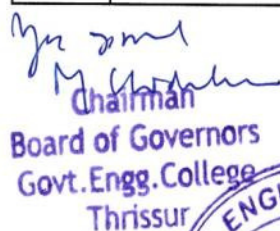 Chairman
Board of Governors
Govt.Engg.College
Thrissur
ENGI